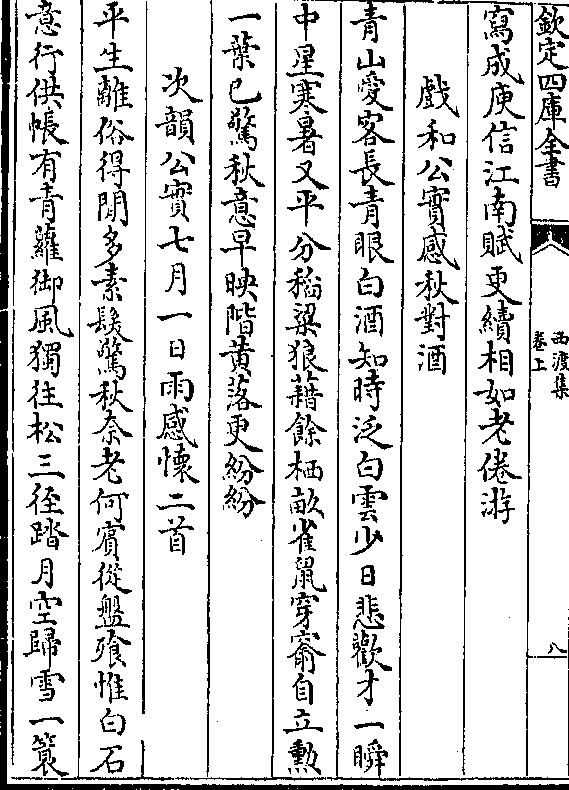 欽定四庫全書
西渡集
卷上
八
寫成庾信江南賦更續相如老倦游
戲和公實感秋對酒
青山愛客長青眼白酒知時泛白雲少日悲歡才一瞬
中星寒暑又平分稻粱狼藉餘栖畝雀鼠穿窬自立勲
一葉已驚秋意早映階黄落更紛紛
次韻公實七月一日雨感懷二首
平生離俗得閒多素髮驚秋奈老何賓從盤飱惟白石
意行供帳有青蘿御風獨往松三徑踏月空歸雪一簑